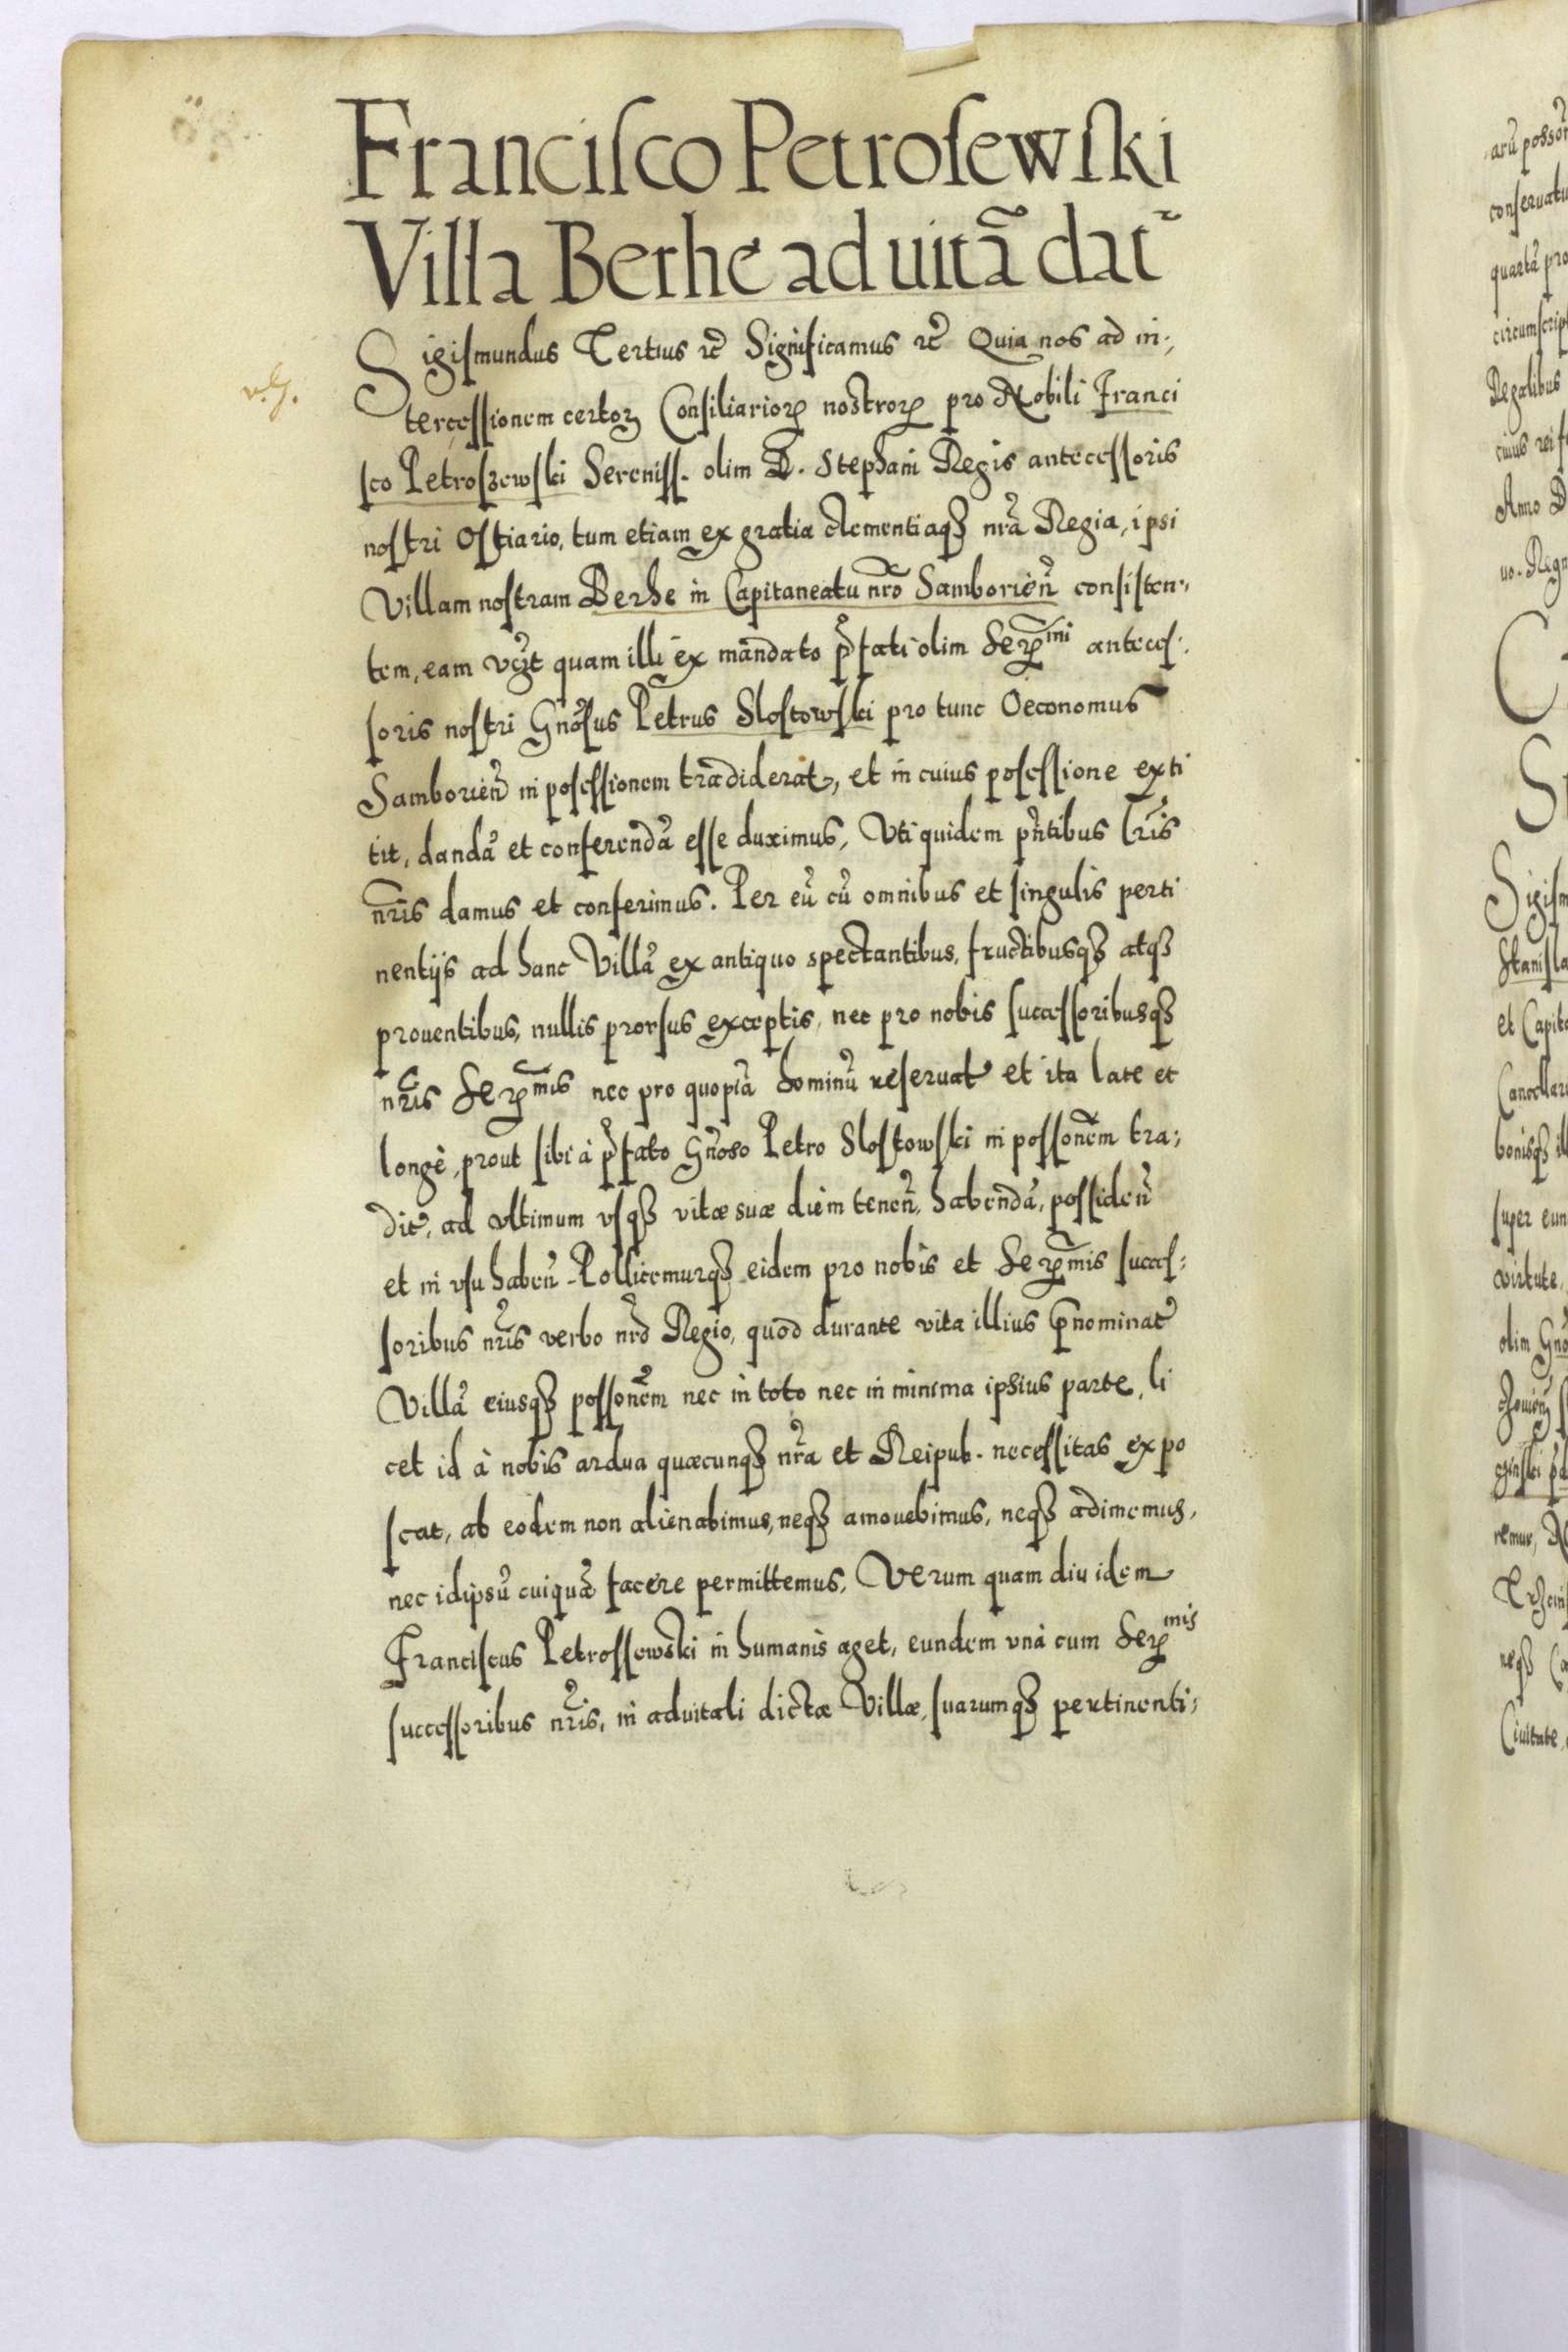 Franciſco Petroſewſki
Villa Berhe ad uitã dat̃
Sigiſmundus Tertius ꝛc̃ Significamus ꝛc̃ Quia nos ad in-,
v. G.
terceſſionem certoꝝ Conſiliarioꝝ nostroꝝ pro Nobili Franci
ſco Petroſzewſki Sereniſſ. olim D. Stephani Regis anteceſſoris
noſtri Oſtiario, tum etiam ex gratia clementiaqꝫ nr̃a Regia, ipsi
Villam noſtram Berhe in Capitaneatu nr̃o Samborieñ conſiſten-,
tem, eam vcꝫt quam illi ex mandato p̃fati olim Serᵐⁱ anteceſ:
ſoris noſtri Gnõſus Petrus Sloſtowſki pro tunc Oeconomus
Samborieñ in poſeſſionem tradiderat, et in cuius poſeſſione exti
tit, dandã et conferendã eſſe duximus, Vti quidem pñtibus Lr̃is
nr̃is damus et conferimus. Per eũ cũ omnibus et ſingulis perti
nentijs ad hanc Villã ex antiquo spectantibus, fructibusqꝫ atqꝫ
prouentibus, nullis prorſus exceptis, nec pro nobis ſucceſſoribusqꝫ
nr̃is Serᵐⁱˢ nec pro quopiã hominũ reſeruat̃ et ita late et
longè, prout ſibi à p̃fato Gñoso Petro Sloſtowſki in poſſonẽm tra;
dit̃, ad vltimum vſqꝫ vitæ suæ diem teneñ, habendã, poſſideñ
et in vſu habeñ. Pollicemurqꝫ eidem pro nobis et Serᵐⁱˢ ſucceſ:
ſoribus nr̃is verbo nr̃o Regio, quod durante vita illius p̃nominat̃
Villã eiusqꝫ poſſonẽm nec in toto nec in minima ipsius parte, li
cet id à nobis ardua quæcunqꝫ nr̃a et Reipub. neceſſitas expo
ſcat, ab eodem non alienabimus, neqꝫ amouebimus, neqꝫ adimemus,
nec idipsũ cuiquã facere permittemus, Verum quam diu idem
Franciſcus Petroſſewski in humanis aget, eundem vnà cum Serᵐⁱˢ
ſucceſſoribus nr̃is, in aduitali dictæ Villæ, ſuarumqꝫ pertinenti;